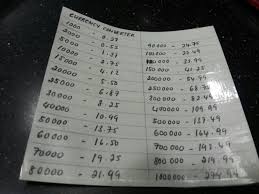 CURRENCY CONVERTER
1000 - 0.27
2000 - 0.55
5000 - 1.37
10000 - 2.75
15000 - 4.12
20000 - 5.50
25000 - 6.87
30000 - 8.25
40000 - 10.99
50000 - 13.75
60000 - 16.50
70000 - 19.25
80000 - 21.99
90000 - 24.75
100000 - 27.49
150000 - 41.25
200000 - 54.99
250000 - 68.75
300000 - 82.49
400000 - 109.99
500000 - 137.49
600000 - 164.99
700000 - 192.49
800000 - 219.99
1000000 - 274.99